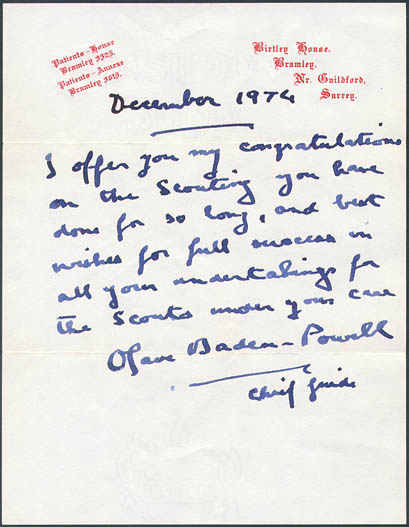 Patients-House
Bramley 3325.
Patients-Annexe
Bramley 3015.
Birtley House.
Bramley.
Nr. Guildford,
Surrey.
December 1974
I offer you my congratulations
on the Scouting you have
done for so long, and best
wishes for full success in
all your undertakings for
the Scouts under your care
Olave Baden-Powell
Chief Guide